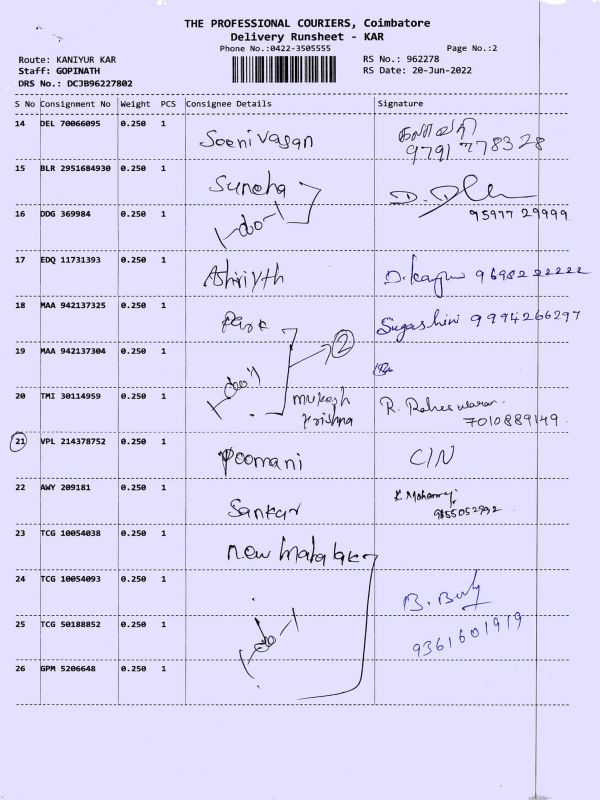 THE PROFESSIONAL COURIERS, Coimbatore
Delivery Runsheet - KAR
Phone No.:0422-3505555
Page No.:2
Route: KANIYUR KAR
RS No.: 962278
Staff: GOPINATH
RS Date: 20-Jun-2022
DRS No.: DCJB96227802
S No Consignment No Weight PCS Consignee Details Signature
14 DEL 70066095 0.250 1 Soenivasan
9791 778328
15 BLR 2951684930 0.250 1 Suncha
95977 29999
16 DDG 369984 0.250 1 -do-
17 EDQ 11731393 0.250 1 9698222222
18 MAA 942137325 0.250 1 Park Sugashini 9994266297
19 MAA 942137304 0.250 1 -do- 2
20 TMI 30114959 0.250 1 mukesh krishna R.
7010889149
21 VPL 214378752 0.250 1 Poomani C/N
22 AWY 209181 0.250 1 Sankar K. Mohanraj
9855052992
23 TCG 10054038 0.250 1 new
24 TCG 10054093 0.250 1 B.
25 TCG 50188852 0.250 1 -do- 9361601919
26 GPM 5206648 0.250 1